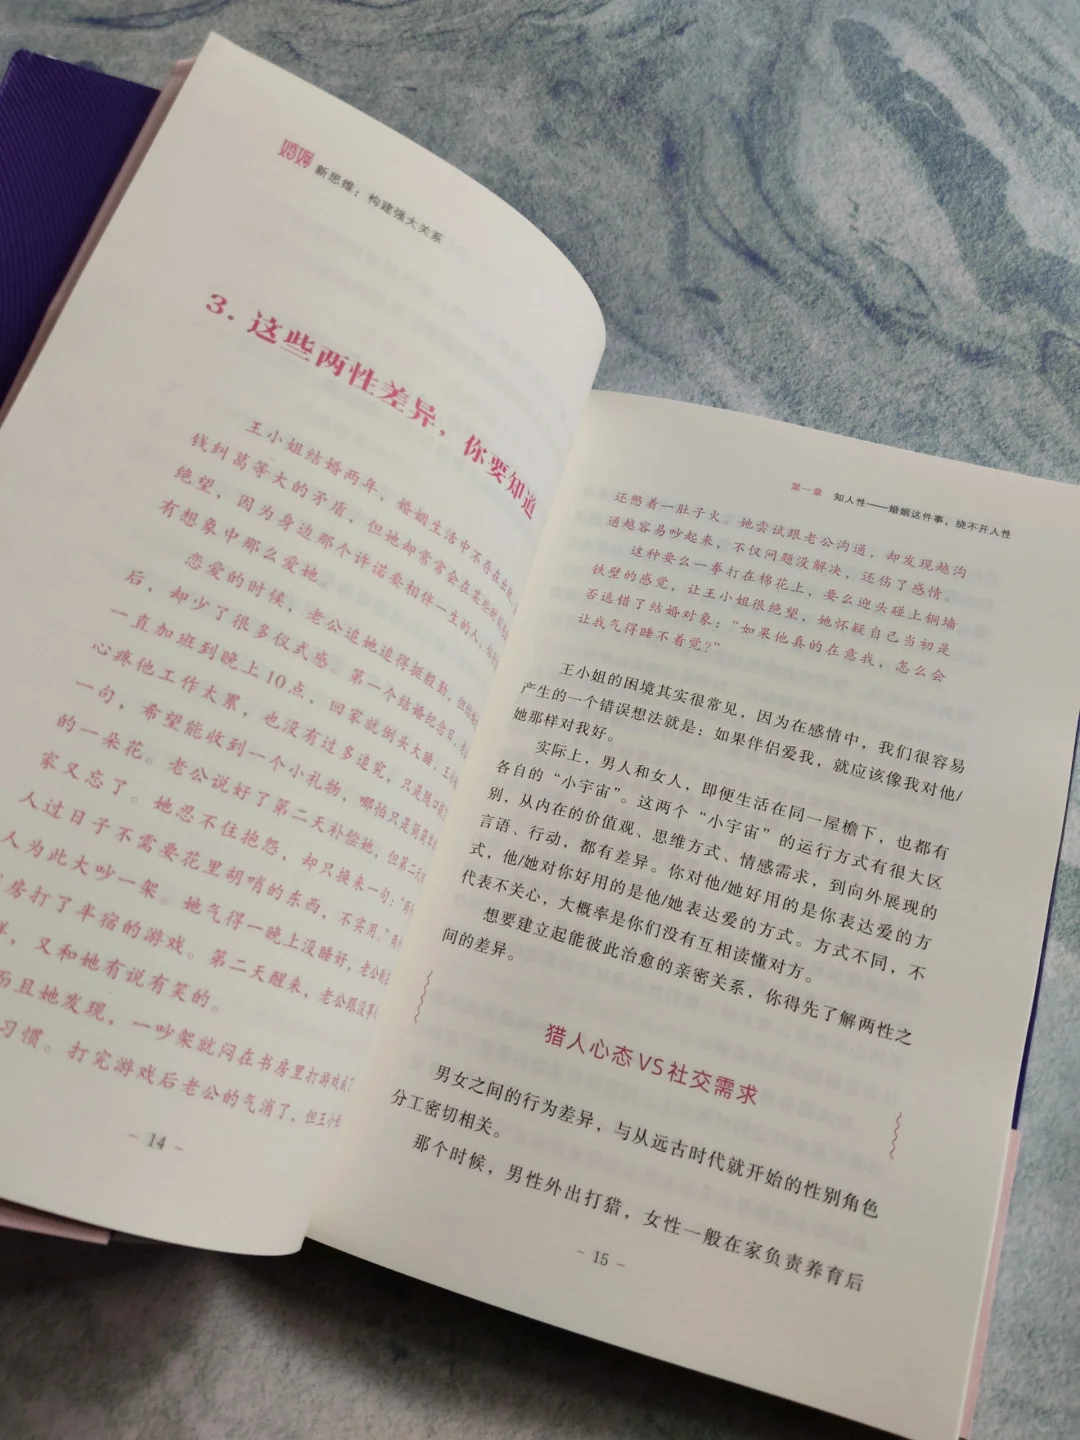 婚姻 新思维：构建强大关系
3. 这些两性差异，你要知道
王小姐结婚两年，婚姻生活中不存在出轨、
钱纠葛等大的矛盾，但她却常常会在某些时刻感到
绝望，因为身边那个许诺要相伴一生的人，似乎没
有想象中那么爱她。
恋爱的时候，老公追她追得挺殷勤，但结婚
后，却少了很多仪式感。第一个结婚纪念日，老公
一直加班到晚上10点，回家就倒头大睡，王小姐
心疼他工作太累，也没有过多追究，只是随口说了
一句，希望能收到一个小礼物，哪怕只是简简单单
的一朵花。老公说好了第二天补偿她，但第二天回
家又忘了。她忍不住抱怨，却只换来一句：“两个
人过日子不需要花里胡哨的东西，不实用。”两
人为此大吵一架。她气得一晚上没睡好，老公却在
房打了半宿的游戏。第二天醒来，老公跟没事人
样，又和她有说有笑的。
而且她发现，一吵架就闷在书房里打游戏成了
习惯。打完游戏后老公的气消了，但王小姐
- 14 -
第一章 知人性——婚姻这件事，绕不开人性
还憋着一肚子火。她尝试跟老公沟通，却发现越沟
通越容易吵起来，不仅问题没解决，还伤了感情。
这种要么一拳打在棉花上，要么迎头碰上铜墙
铁壁的感觉，让王小姐很绝望，她怀疑自己当初是
否选错了结婚对象：“如果他真的在意我，怎么会
让我气得睡不着觉？”
王小姐的困境其实很常见，因为在感情中，我们很容易
产生的一个错误想法就是：如果伴侣爱我，就应该像我对他/
她那样对我好。
实际上，男人和女人，即便生活在同一屋檐下，也都有
各自的“小宇宙”。这两个“小宇宙”的运行方式有很大区
别，从内在的价值观、思维方式、情感需求，到向外展现的
言语、行动，都有差异。你对他/她好用的是你表达爱的方
式，他/她对你好用的是他/她表达爱的方式。方式不同，不
代表不关心，大概率是你们没有互相读懂对方。
想要建立起能彼此治愈的亲密关系，你得先了解两性之
间的差异。
猎人心态VS社交需求
男女之间的行为差异，与从远古时代就开始的性别角色
分工密切相关。
那个时候，男性外出打猎，女性一般在家负责养育后
- 15 -